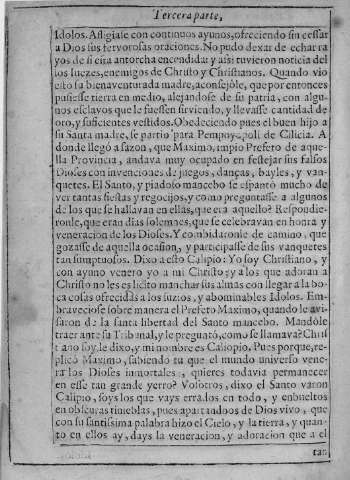 Tercera parte,
Idolos. Afligiase con continuos ayunos, ofreciendo sin cessar
a Dios sus fervorosas oraciones. No pudo dexar de echar ra
yos de si esta antorcha encendida: y assi tuvieron noticia del
los Juezes, enemigos de Christo y Christianos. Quando vio
esto su bienaventurada madre, aconsejòle, que por entonces
pusiesse tierra en medio, alejandose de su patria, con algu-
nos esclavos que le fuessen sirviendo, y llevasse cantidad de
oro, y suficientes vestidos. Obedeciendo pues el buen hijo a
su Santa madre, se partio para Pompoypoli de Cilicia. A
donde llegò a sazon, que Maximo, impio Prefeto de aque-
lla Provincia, andava muy ocupado en festejar sus falsos
Dioses con invenciones de juegos, danças, bayles, y van-
quetes. El Santo, y piadoso mancebo se espantò mucho de
ver tantas fiestas y regocijos, y como preguntasse a algunos
de los que se hallavan en ellas, que era aquello? Respondie-
ronle, que eran dias solemnes, que se celebravan en honra y
veneracion de los Dioses. Y combidaronle de camino, que
gozasse de aquella ocasion, y participasse de sus vanquetes
tan sumptuosos. Dixo a esto Caliopio: Yo soy Christiano, y
con ayuno venero yo a mi Christo; y a los que adoran a
Christo no les es licito manchar sus almas con llegar a la bo-
ca cosas ofrecidas a los suzios, y abominables Idolos. Em-
braveciose sobre manera el Prefeto Maximo, quando le avi-
saron de la santa libertad del Santo mancebo. Mandòle
traer ante su Tribunal, y le preguntò, como se llamava? Chris
tiano soy, le dixo, y mi nombre es Caliopio. Pues porque, re-
plicò Maximo, sabiendo tu que el mundo universo vene-
ra los Dioses inmortales, quieres todavia permanecer
en esse tan grande yerro? Vosotros, dixo el Santo varon
Calipio, soys los que vays errados en todo, y enbueltos
en obscuras tinieblas, pues apartandoos de Dios vivo, que
con su santissima palabra hizo el Cielo, y la tierra, y quan-
to en ellos ay, days la veneracion, y adoracion que a el
tan